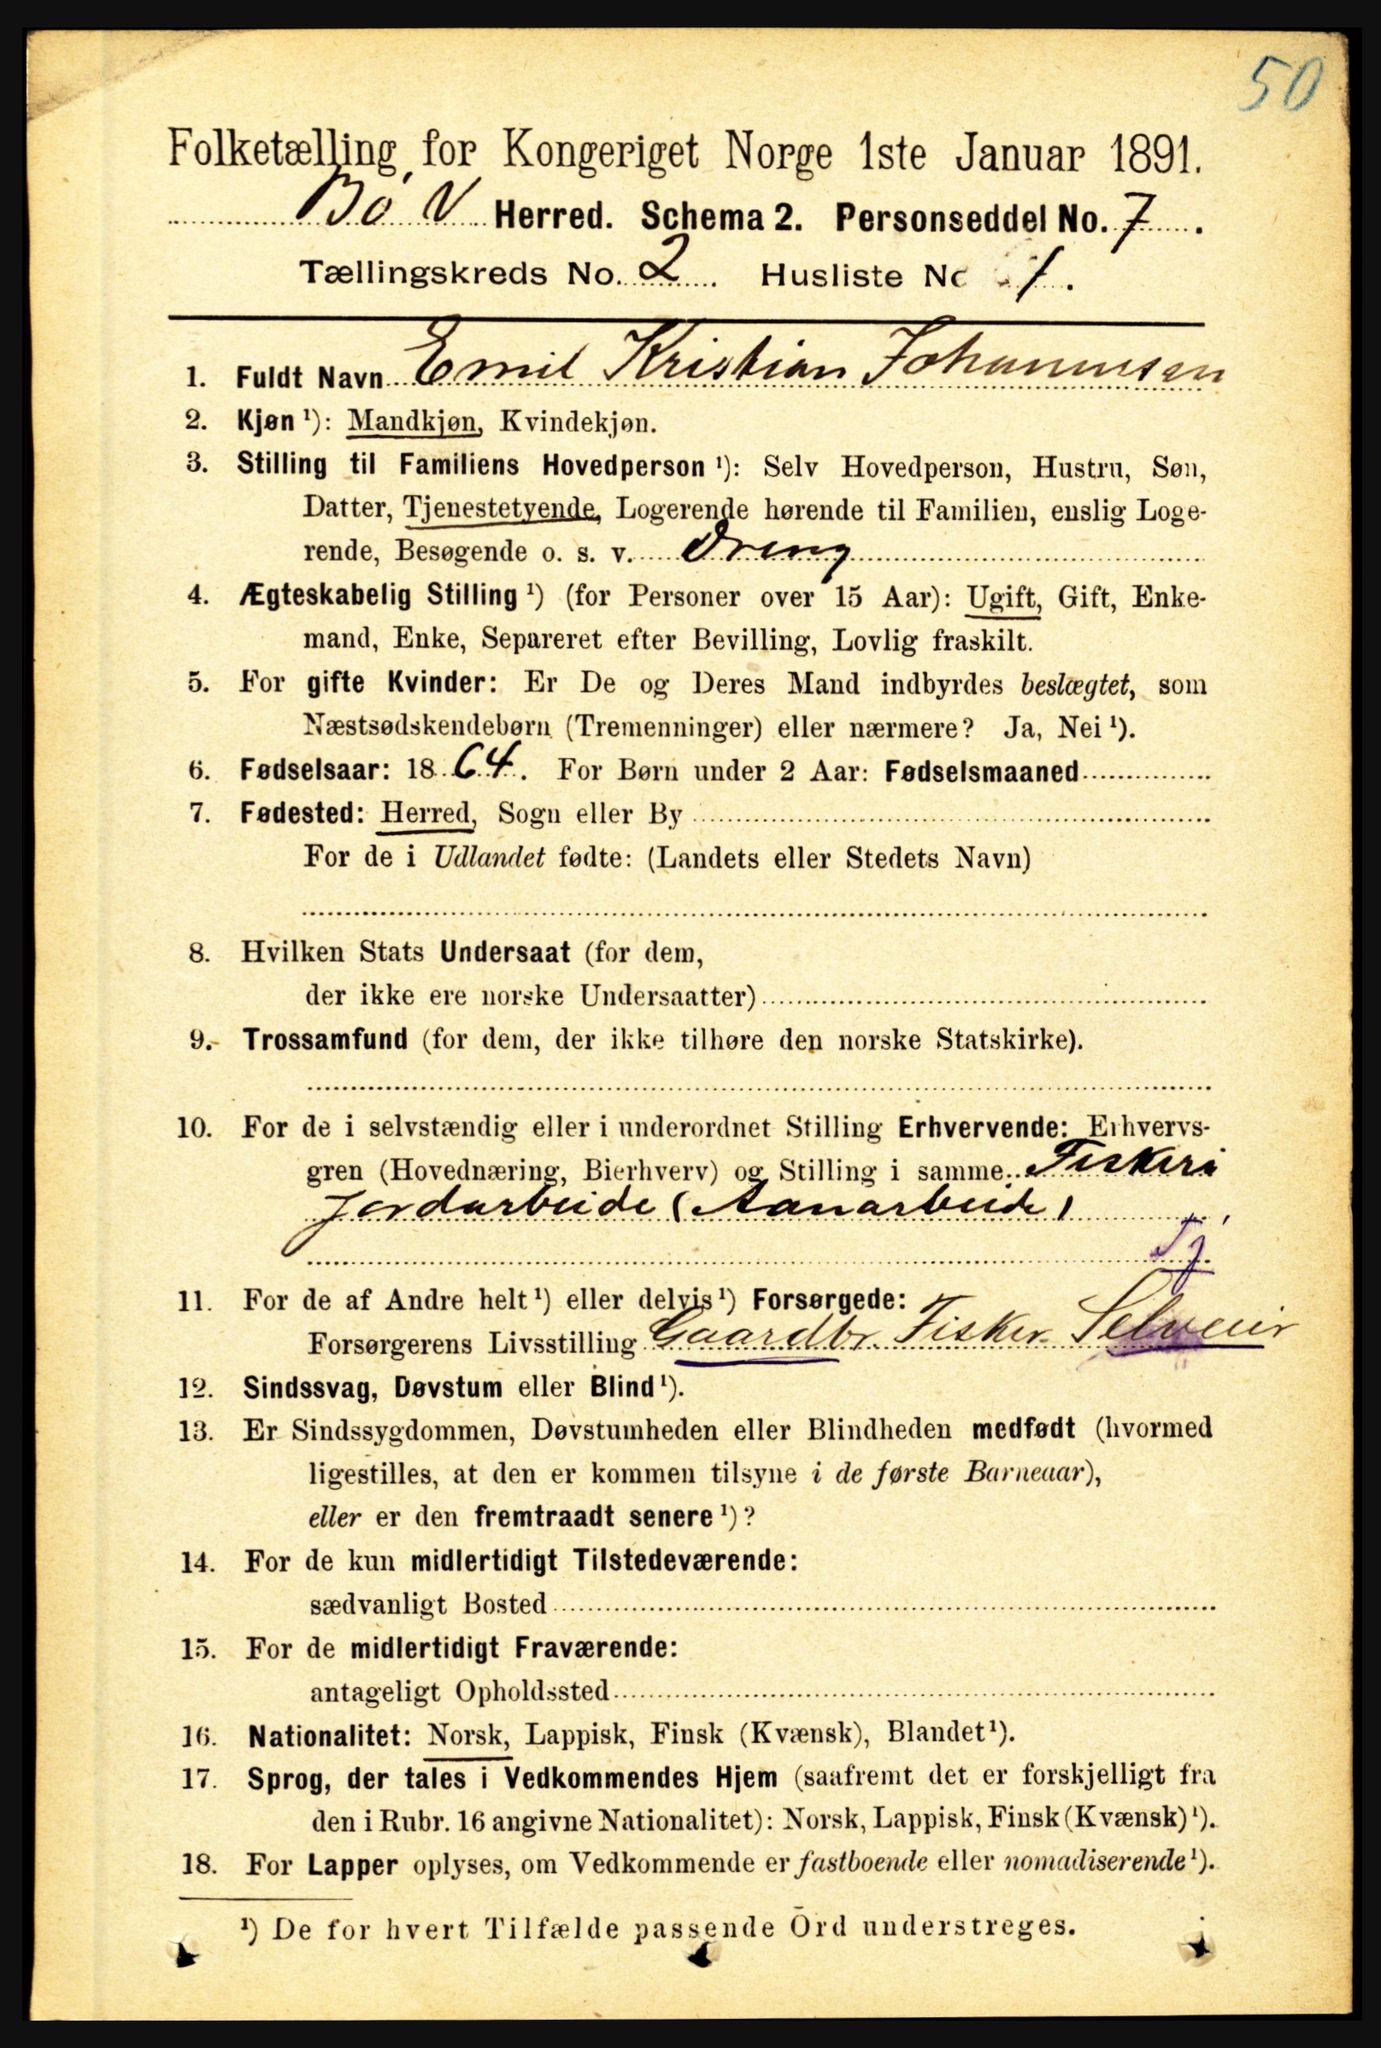 50
Folketælling for Kongeriget Norge 1ste Januar 1891.
Bø V Herred. Schema 2. Personseddel No. 7.
Tællingskreds No. 2. Husliste No 1.
1. Fuldt Navn Emil Kristian Johannesen
2. Kjøn ¹): Mandkjøn, Kvindekjøn.
3. Stilling til Familiens Hovedperson ¹): Selv Hovedperson, Hustru, Søn,
Datter, Tjenestetyende, Logerende hørende til Familien, enslig Loge-
rende, Besøgende o. s. v. Dreng
4. Ægteskabelig Stilling ¹) (for Personer over 15 Aar): Ugift, Gift, Enke-
mand, Enke, Separeret efter Bevilling, Lovlig fraskilt.
5. For gifte Kvinder: Er De og Deres Mand indbyrdes beslægtet, som
Næstsødskendebørn (Tremenninger) eller nærmere? Ja, Nei ¹).
6. Fødselsaar: 1864. For Børn under 2 Aar: Fødselsmaaned
7. Fødested: Herred, Sogn eller By
For de i Udlandet fødte: (Landets eller Stedets Navn)
8. Hvilken Stats Undersaat (for dem,
der ikke ere norske Undersaatter)
9. Trossamfund (for dem, der ikke tilhøre den norske Statskirke).
10. For de i selvstændig eller i underordnet Stilling Erhvervende: Erhvervs-
gren (Hovednæring, Bierhverv) og Stilling i samme. Fiskeri
Jordarbeide (Aanarbeide)
Tj.
11. For de af Andre helt ¹) eller delvis ¹) Forsørgede:
Forsørgerens Livsstilling Gaardbr. Fisker Selveier
12. Sindssvag, Døvstum eller Blind ¹).
13. Er Sindssygdommen, Døvstumheden eller Blindheden medfødt (hvormed
ligestilles, at den er kommen tilsyne i de første Barneaar),
eller er den fremtraadt senere ¹)?
14. For de kun midlertidigt Tilstedeværende:
sædvanligt Bosted
15. For de midlertidigt Fraværende:
antageligt Opholdssted
16. Nationalitet: Norsk, Lappisk, Finsk (Kvænsk), Blandet ¹).
17. Sprog, der tales i Vedkommendes Hjem (saafremt det er forskjelligt fra
den i Rubr. 16 angivne Nationalitet): Norsk, Lappisk, Finsk (Kvænsk) ¹).
18. For Lapper oplyses, om Vedkommende er fastboende eller nomadiserende ¹).
¹) De for hvert Tilfælde passende Ord understreges.